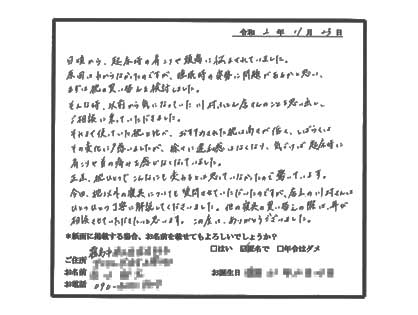 令和 2年 11月 23日
日頃から、起床時の肩こりや頭痛に悩まされていました。
原因は中々わからなかったのですが、睡眠時の姿勢に問題があるかと思い、
まずは枕の買い替えを検討しました。
そんな時、以前から気になっていた ふとん店さんのことを思い出し、
ご相談に来ていただきました。
それまで使っていた枕と比べ、おすすめされた枕は高さが低く、しばらくは
その変化に戸惑いましたが、徐々に違和感はなくなり、気づけば起床時に
肩こりや首の痛みを感じなくなっていました。
正直、枕ひとつでこんなにも変わるとは思っていなかったので驚いています。
今回、枕以外の寝具についても質問させていただいたのですが、店主の
ひとつひとつ丁寧に解説してくださいました。他の寝具の買い替えの際は、是非
相談させていただきたいと思います。この度は、ありがとうございました。
*紙面に掲載する場合、お名前を載せてもよろしいでしょうか?
□はい ☑匿名で □年令はダメ
ご住所
お名前 お誕生日
お電話 090-